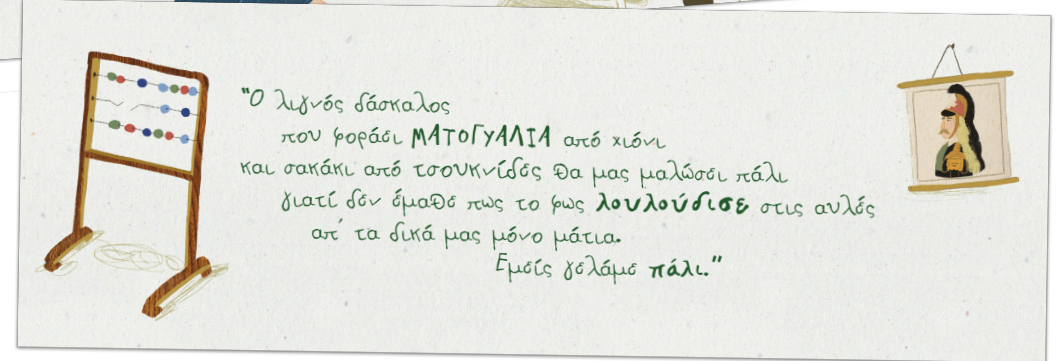 "Ο λιγνός δάσκαλος
που φοράει ΜΑΤΟΓΥΑΛΙΑ από χιόνι
και σακάκι από τσουκνίδες θα μας μαλώσει πάλι
γιατί δεν έμαθε πως το φως λουλούδισε στις αυλές
απ' τα δικά μας μόνο μάτια.
Εμείς γελάμε πάλι."